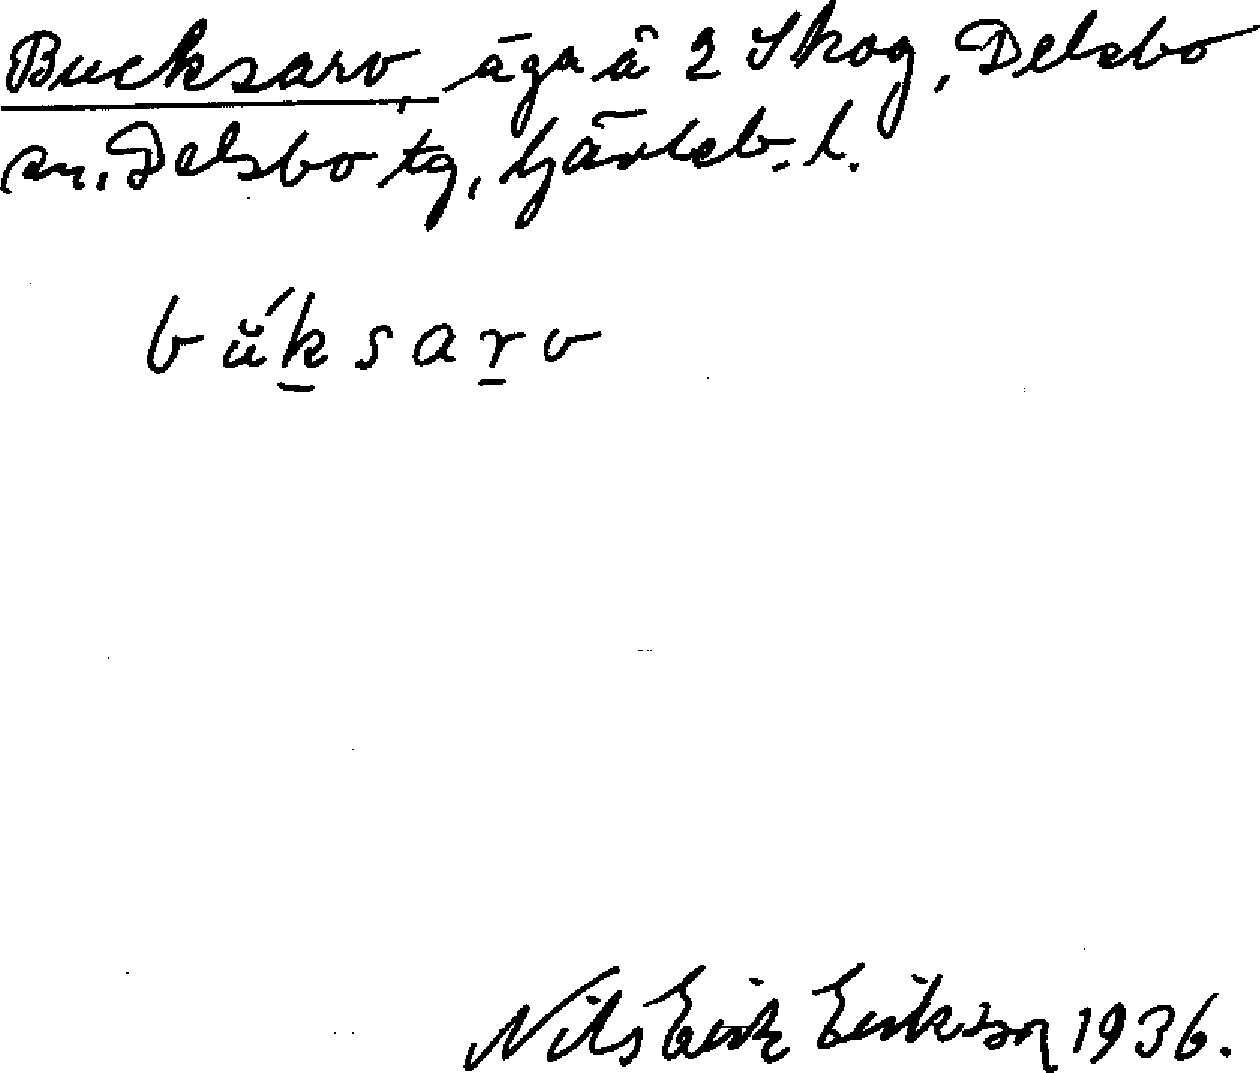 Bucksarv, äga å 2 Skog, Delsbo
sn. Delsbo tg, Gävleb. l.
bŭ́k̲sar̲v
Nils Erik Erikson 1936.